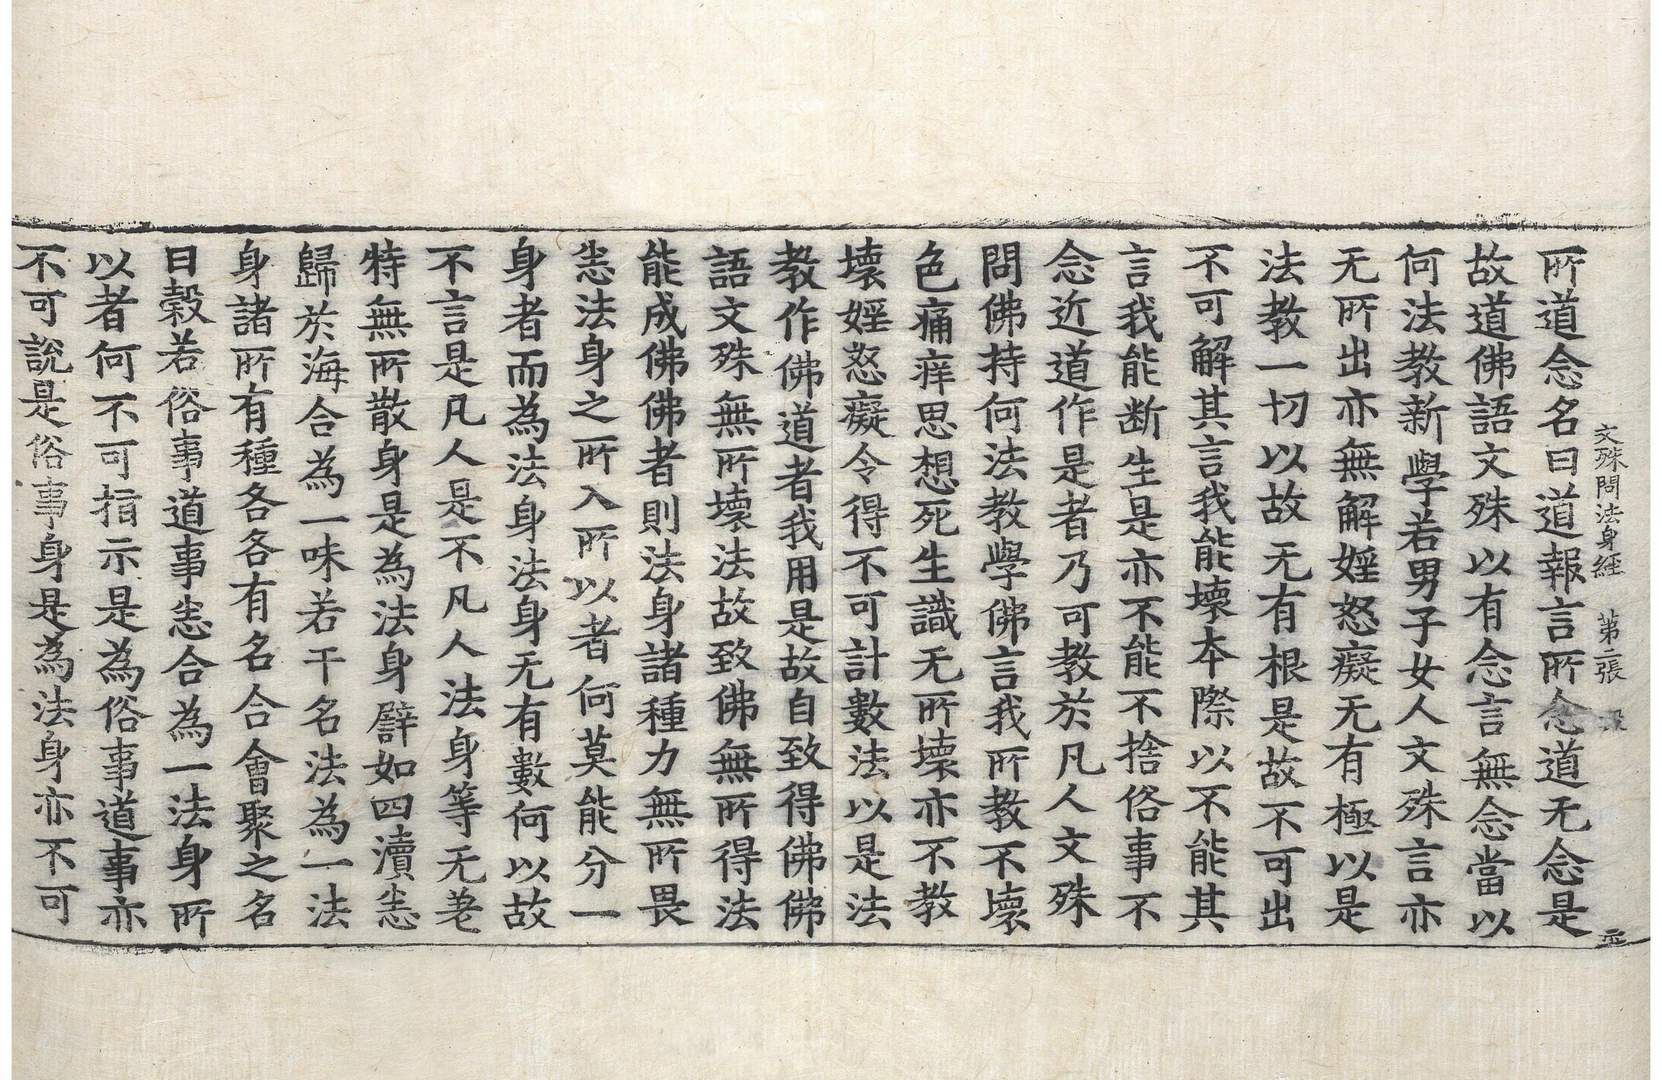 文殊問法身經 第二張
所道念名曰道報言所念道无念是
故道佛語文殊以有念言無念當以
何法教新學若男子女人文殊言亦
无所出亦無解婬怒癡无有極以是
法教一切以故无有根是故不可出
不可解其言我能壞本際以不能其
言我能断生是亦不能不捨俗事不
念近道作是者乃可教於凡人文殊
問佛持何法教學佛言我所教不壞
色痛痒思想死生識无所壞亦不教
壞婬怒癡令得不可計數法以是法
教作佛道者我用是故自致得佛佛
語文殊無所壞法故致佛無所得法
能成佛佛者則法身諸種力無所畏
悉法身之所入所以者何莫能分一
身者而為法身法身无有數何以故
不言是凡人是不凡人法身等无差
特無所散身是為法身譬如四瀆悉
歸於海合為一味若干名法為一法
身諸所有種各各有名合會聚之名
曰穀若俗事道事悉合為一法身所
以者何不可指示是為俗事道事亦
不可說是俗事身是為法身亦不可